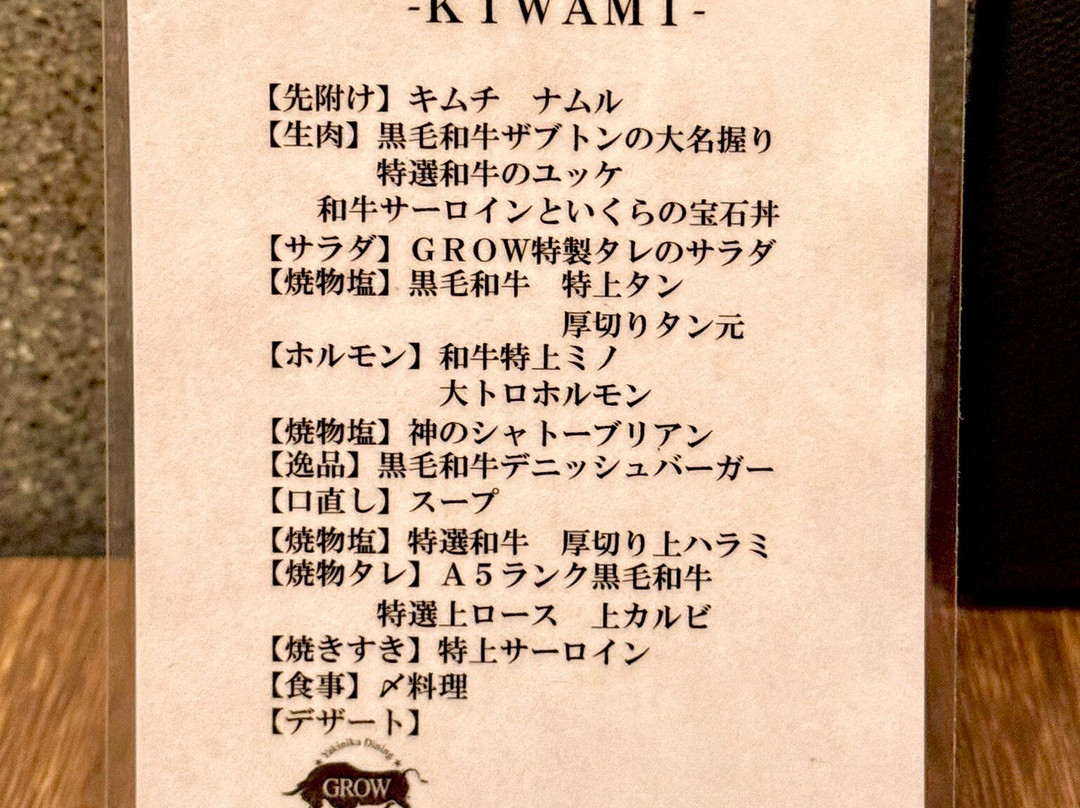 -KIWAMI-
【先附け】キムチ　ナムル
【生肉】黒毛和牛ザブトンの大名握り
特選和牛のユッケ
和牛サーロインといくらの宝石丼
【サラダ】GROW特製タレのサラダ
【焼物塩】黒毛和牛　特上タン
厚切りタン元
【ホルモン】和牛特上ミノ
大トロホルモン
【焼物塩】神のシャトーブリアン
【逸品】黒毛和牛デニッシュバーガー
【口直し】スープ
【焼物塩】特選和牛　厚切り上ハラミ
【焼物タレ】A５ランク黒毛和牛
特選上ロース　上カルビ
【焼きすき】特上サーロイン
【食事】〆料理
【デザート】
Yakiniku Dining
GROW